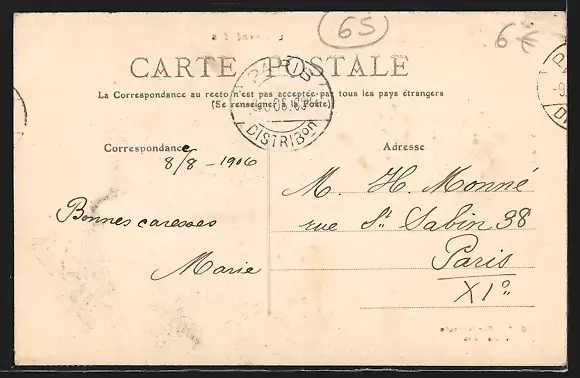 65
6€
CARTE POSTALE
La Correspondance au recto n'est pas acceptée par tous les pays étrangers
(Se renseigner à la Poste)
PARIS
DISTRIBon
Correspondance
8/8 - 1906
Bonnes caresses
Marie
Adresse
M. H. Monné
rue St Sabin 38
Paris
XIe